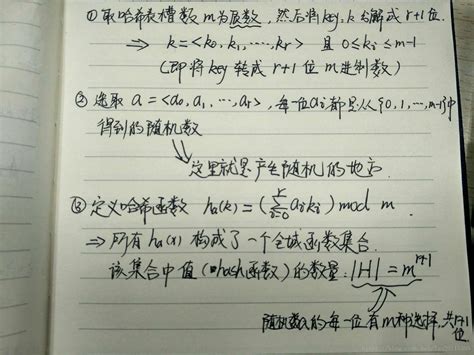 ① 取哈希表槽数 m 为质数，然后将key, k 分解成 r+1 位.
⇒ k=<k₀, k₁, ⋯, kᵣ> 且 0≤kᵢ≤m-1
(即将 key 转成 r+1 位 m 进制数)
② 选取 a=<a₀, a₁, ⋯, aᵣ>, 每一位aᵢ都是从{0, 1, ⋯, m-1}中
得到的随机数
这里就是产生随机的地方.
③ 定义哈希函数 hₐ(k) = (∑ᵢ₌₀ʳ aᵢkᵢ) mod m.
⇒ 所有 hₐ(x) 构成了一个全域函数集合.
该集合中值 (hash函数) 的数量. |H| = mʳ⁺¹
随机数a的每一位有m种选择, 共r+1
位